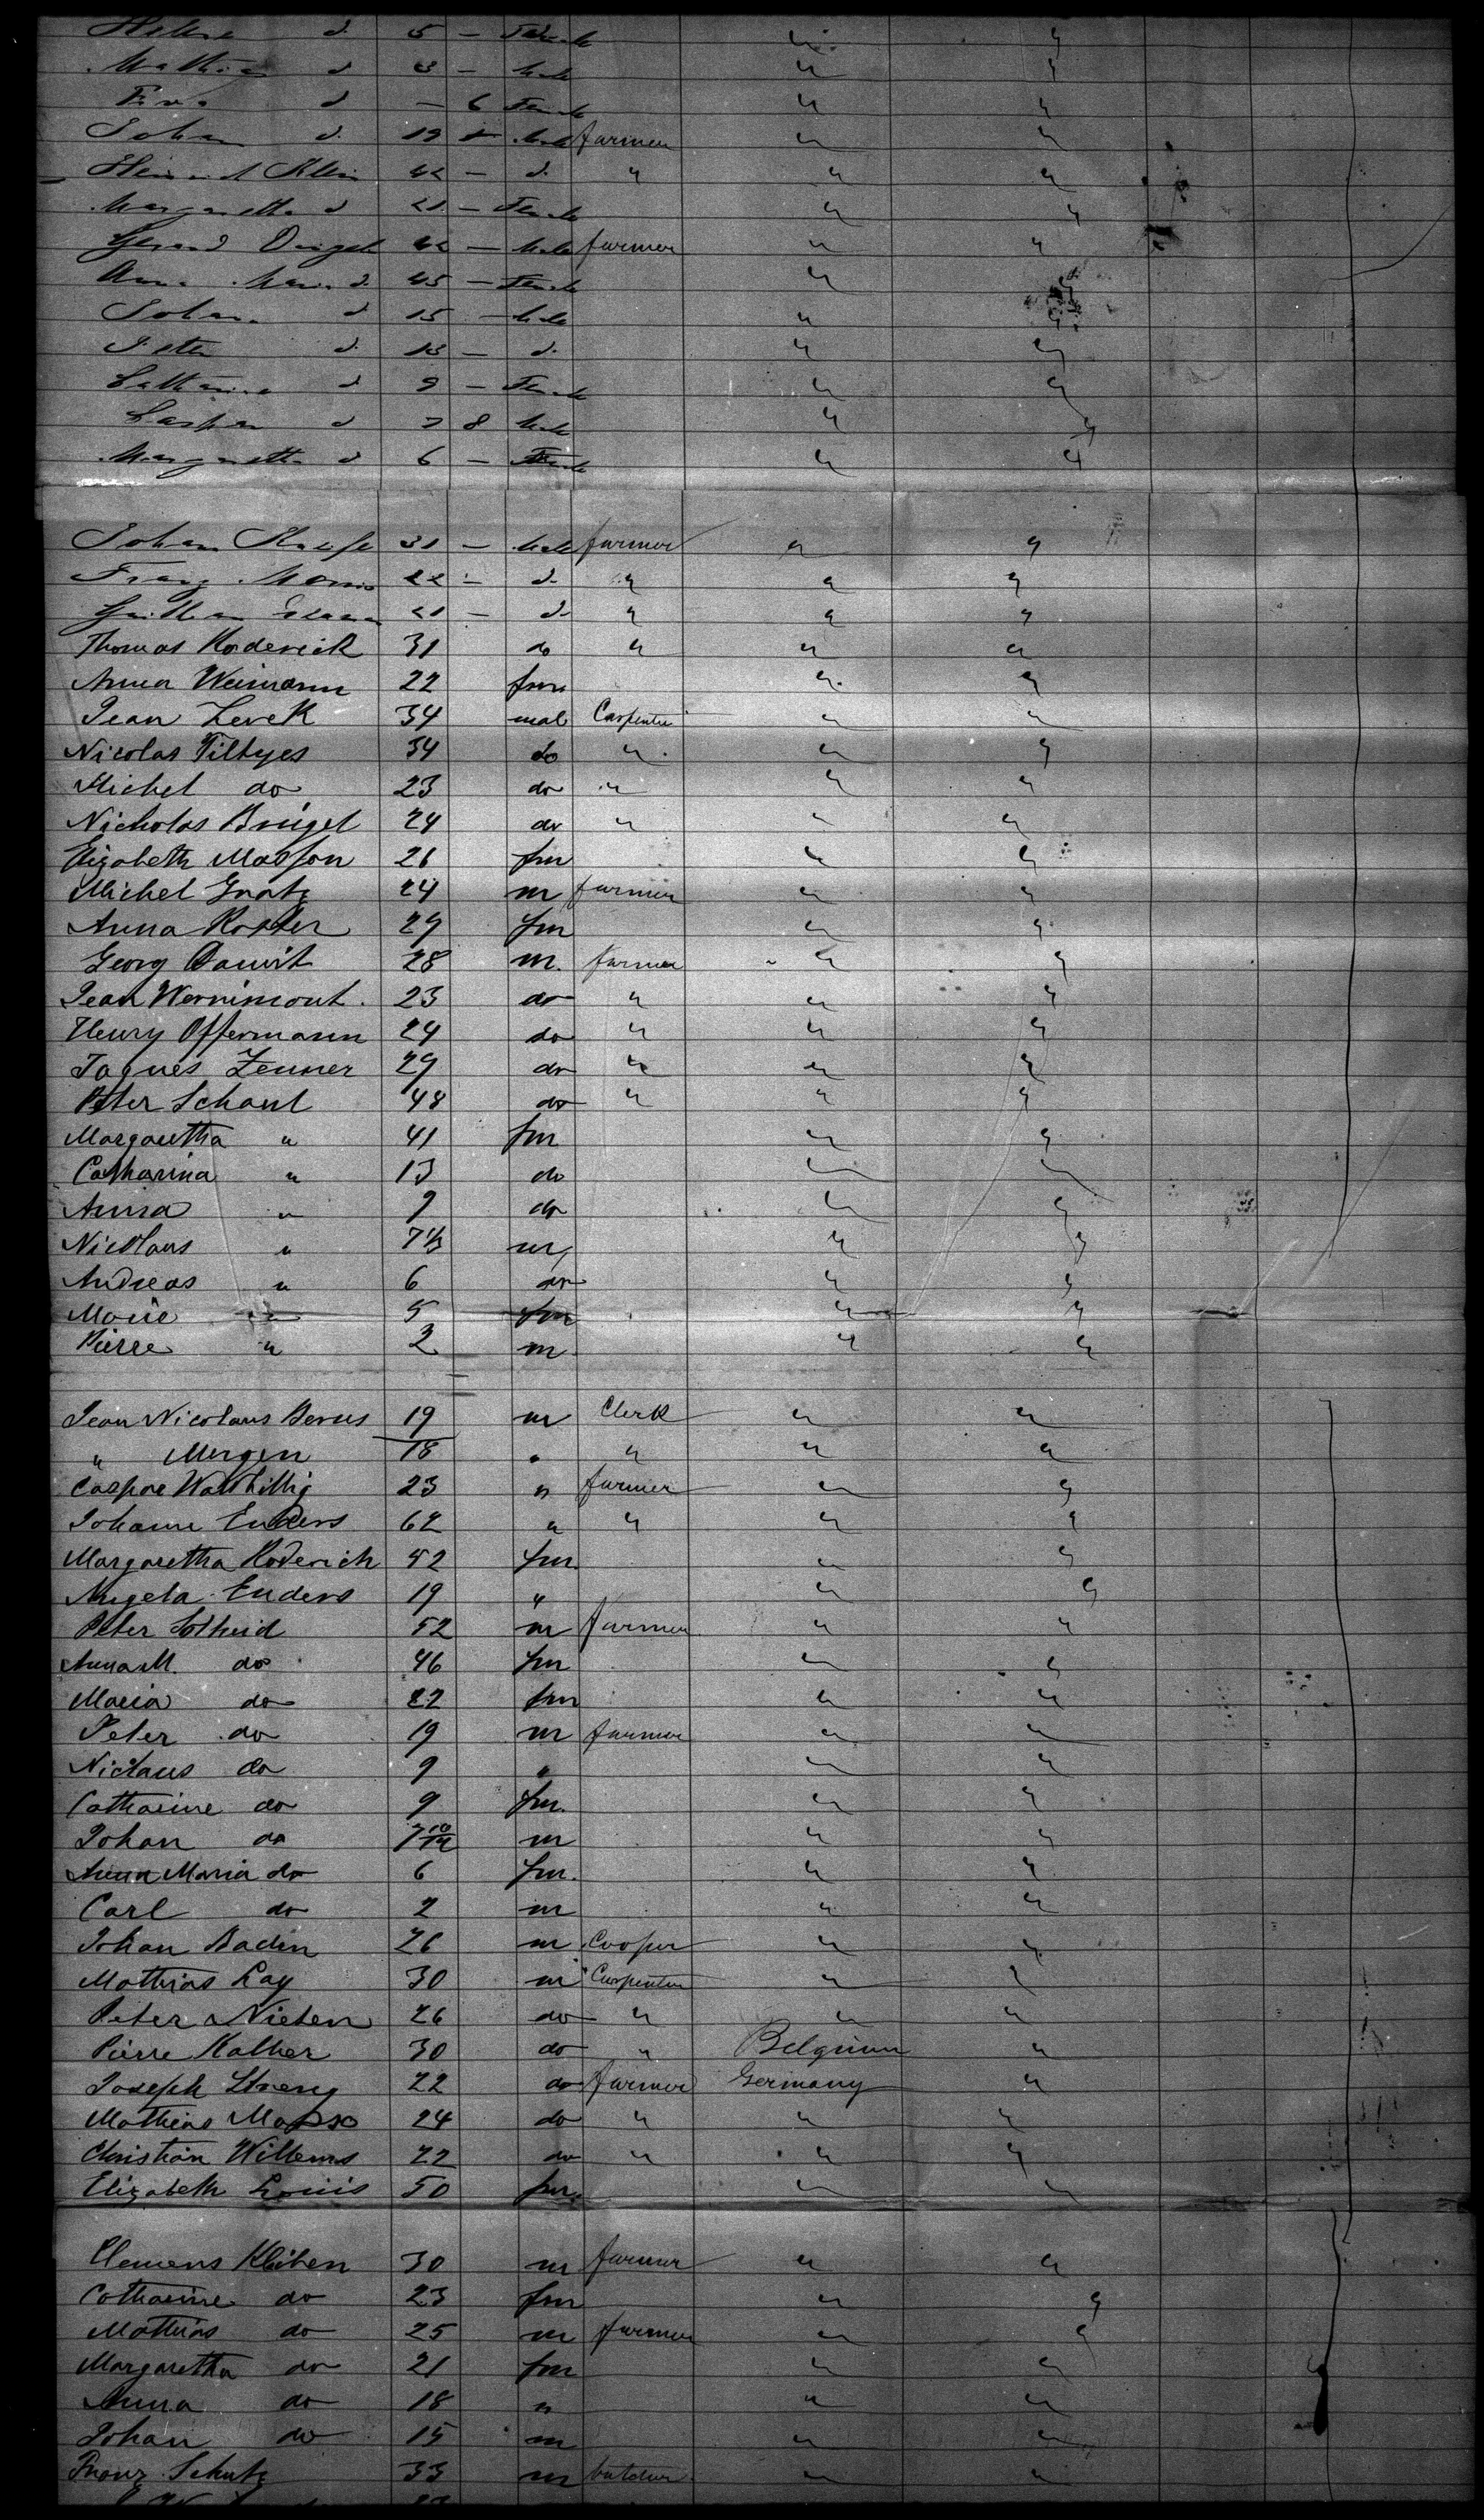 Helena d. 5 - Female " "
Mathias d 3 - Male " "
d - 6 Female " "
Johan d. 19 - Male farmer " "
Heinrich Klein 42 - d. " " "
Margaretha d 21 - Female " "
Gerard 42 - Male farmer " "
Anna Maria d. 45 - Female " "
Johan d 15 - Male " "
Peter d. 13 - d. " "
Catharina d 9 - Female " "
Caspar d 7 8 Male " "
Margaretha d 6 - Female " "
Johan 31 - Male farmer " "
Franz 22 - d. " " "
21 - d. " " "
Thomas Roderick 31 do " " "
Anna Weimann 22 fm " "
Jean Zevek 34 mal Carpenter " "
Nicolas Tilbyes 34 do " " "
Michel do 23 do " " "
Nicholas Brügel 24 do " " "
Elizabeth Masson 26 fm " "
Michel Gratz 24 m farmer " "
Anna Koster 29 fm " "
Georg 28 m. farmer " "
Jean Wernimont. 23 do " " "
Henry Offermann 24 do " " "
Jaques Zenner 29 do " " "
Peter Schaul 48 do " " "
Margaretha " 41 fm " "
Catharina " 13 do " "
Anna " 9 do " "
Nicolaus " 7 1/3 m " "
Andreas " 6 do " "
Marie " 5 fm " "
Pierre " 2 m " "
Jean Nicolaus Berus 19 m Clerk " "
" Mergen 18 " " " "
Caspar Wallbillig 23 " farmer " "
Johann Enders 62 " " " "
Margaretha Roderich 52 fm. " "
Angela Enders 19 " " "
Peter Lotheid 52 m farmer " "
Anna M. do 46 fm " "
Maria do 22 fm " "
Peter do 19 m farmer " "
Niclaus do 9 " " "
Catharine do 9 fm. " "
Johan do 7 10/12 m " "
Anna Maria do 6 fm. " "
Carl do 2 m " "
Johan Baden 26 m Cooper " "
Mathias Lay 30 m Carpenter " "
Peter Nieten 26 do " " "
Pierre Kolber 30 do " Belgium "
Joseph Streng 22 do farmer Germany "
Mathias 24 do " " "
Christian Willems 22 do " " "
Elizabeth Louis 50 fm. " "
Clemens Kleiben 30 m farmer " "
Catharine do 23 fm " "
Mathias do 25 m farmer " "
Margaretha do 21 fm " "
Anna do 18 " " "
Johan do 15 m " "
Franz Schutz 33 m butcher " "